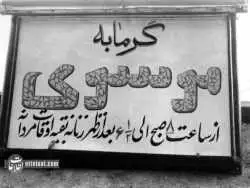 گرمابه
موسوی
از ساعت ۸ صبح الی ۶ بعد از ظهر زنانه بقیه اوقات مردانه